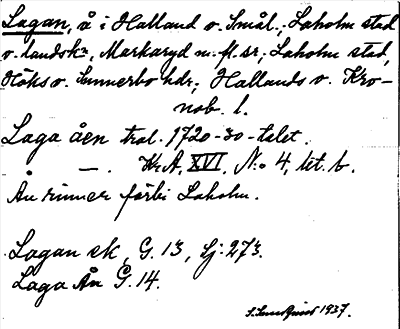 Lagan, å i Halland o. Smål.; Laholm stad
o. landsk:r, Markaryd m. fl. sr; Laholm stad,
Höks o. Sunnerbo hdr; Hallands o. Kro-
nob. l.
Laga åen trol. 1720-30-talet.
å — . Kr.A. XVI, N:o 4, lit. b.
Ån rinner förbi Laholm.
Lagan sk, G. 13, Sj: 273.
Laga Ån G. 14.
1937.